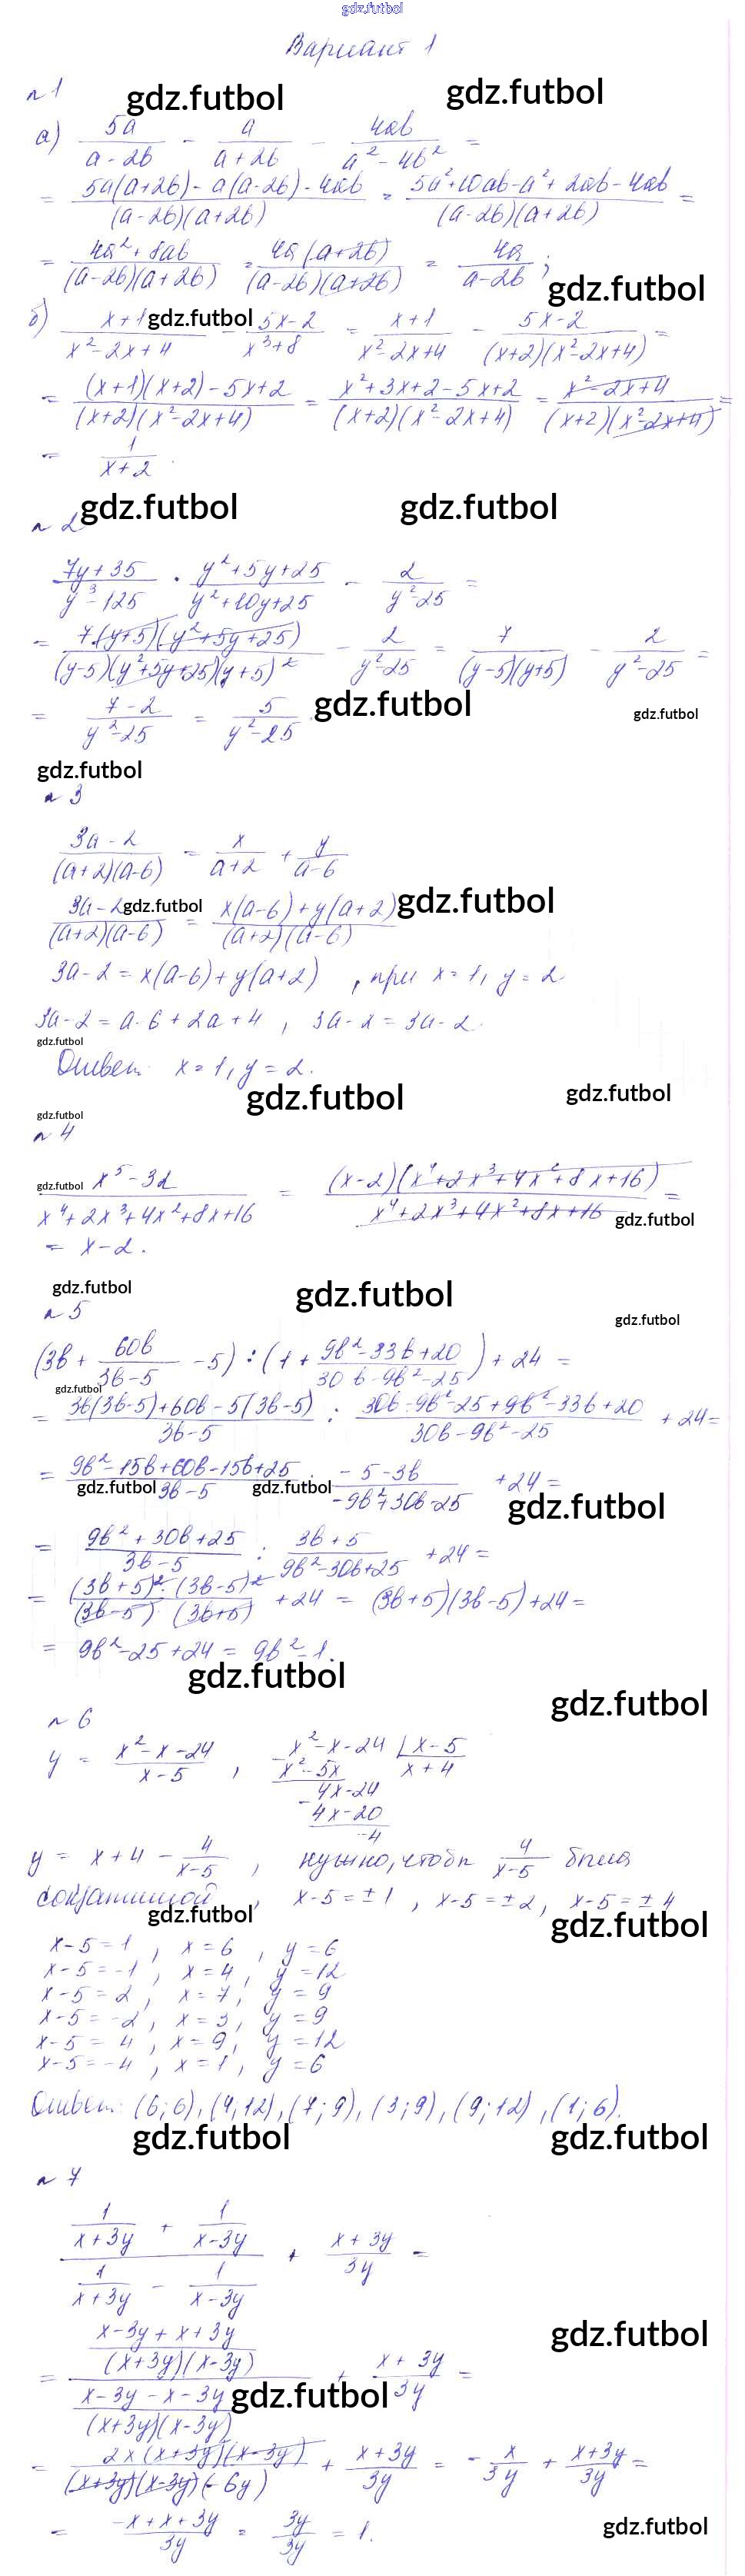 gdz.futbol
Вариант 1
n 1
gdz.futbol gdz.futbol
а) 5a/(a-2b) - a/(a+2b) - 4ab/(a²-4b²) =
= (5a(a+2b)-a(a-2b)-4ab)/((a-2b)(a+2b)) = (5a²+10ab-a²+2ab-4ab)/((a-2b)(a+2b)) =
= (4a²+8ab)/((a-2b)(a+2b)) = 4a(a+2b)/((a-2b)(a+2b)) = 4a/(a-2b);
gdz.futbol
б) (x+1)/(x²-2x+4) - (5x-2)/(x³+8) = (x+1)/(x²-2x+4) - (5x-2)/((x+2)(x²-2x+4)) =
gdz.futbol
= ((x+1)(x+2)-5x+2)/((x+2)(x²-2x+4)) = (x²+3x+2-5x+2)/((x+2)(x²-2x+4)) = (x²-2x+4)/((x+2)(x²-2x+4)) =
= 1/(x+2).
n 2
gdz.futbol gdz.futbol
(7y+35)/(y³-125) · (y²+5y+25)/(y²+10y+25) - 2/(y²-25) =
= 7(y+5)(y²+5y+25)/((y-5)(y²+5y+25)(y+5)²) - 2/(y²-25) = 7/((y-5)(y+5)) - 2/(y²-25) =
= (7-2)/(y²-25) = 5/(y²-25).
gdz.futbol gdz.futbol
gdz.futbol
n 3
(3a-2)/((a+2)(a-6)) = x/(a+2) + y/(a-6)
(3a-2)/((a+2)(a-6)) = (x(a-6)+y(a+2))/((a+2)(a-6))
gdz.futbol gdz.futbol
3a-2 = x(a-6)+y(a+2), при x=1, y=2
3a-2 = a-6+2a+4, 3a-2=3a-2.
gdz.futbol
Ответ: x=1, y=2.
gdz.futbol gdz.futbol
gdz.futbol
n 4
gdz.futbol
(x⁵-32)/(x⁴+2x³+4x²+8x+16) = (x-2)(x⁴+2x³+4x²+8x+16)/(x⁴+2x³+4x²+8x+16) =
gdz.futbol
= x-2.
gdz.futbol gdz.futbol
n 5
gdz.futbol
(3b + 60b/(3b-5) - 5) : (1 + (9b²-33b+20)/(30b-9b²-25)) + 24 =
gdz.futbol
= (3b(3b-5)+60b-5(3b-5))/(3b-5) : (30b-9b²-25+9b²-33b+20)/(30b-9b²-25) + 24 =
= (9b²-15b+60b-15b+25)/(3b-5) : (-5-3b)/(-9b²+30b-25) + 24 =
gdz.futbol gdz.futbol
gdz.futbol
= (9b²+30b+25)/(3b-5) : (3b+5)/(9b²-30b+25) + 24 =
= (3b+5)²·(3b-5)²/((3b-5)·(3b+5)) + 24 = (3b+5)(3b-5)+24 =
= 9b²-25+24 = 9b²-1.
gdz.futbol
gdz.futbol
n 6
y = (x²-x-24)/(x-5),
x²-x-24 | x-5
x²-5x x+4
4x-24
4x-20
-4
y = x+4 - 4/(x-5), нужно, чтобы 4/(x-5) была
сократимой, x-5=±1, x-5=±2, x-5=±4
gdz.futbol gdz.futbol
x-5=1, x=6, y=6
x-5=-1, x=4, y=12
x-5=2, x=7, y=9
x-5=-2, x=3, y=9
x-5=4, x=9, y=12
x-5=-4, x=1, y=6
Ответ: (6;6), (4;12), (7;9), (3;9), (9;12), (1;6).
gdz.futbol gdz.futbol
n 7
(1/(x+3y) + 1/(x-3y))/(1/(x+3y) - 1/(x-3y)) + (x+3y)/3y =
gdz.futbol
= ((x-3y+x+3y)/((x+3y)(x-3y)))/((x-3y-x-3y)/((x+3y)(x-3y))) + (x+3y)/3y =
gdz.futbol
= 2x(x+3y)(x-3y)/((x+3y)(x-3y)(-6y)) + (x+3y)/3y = -x/3y + (x+3y)/3y =
= (-x+x+3y)/3y = 3y/3y = 1.
gdz.futbol